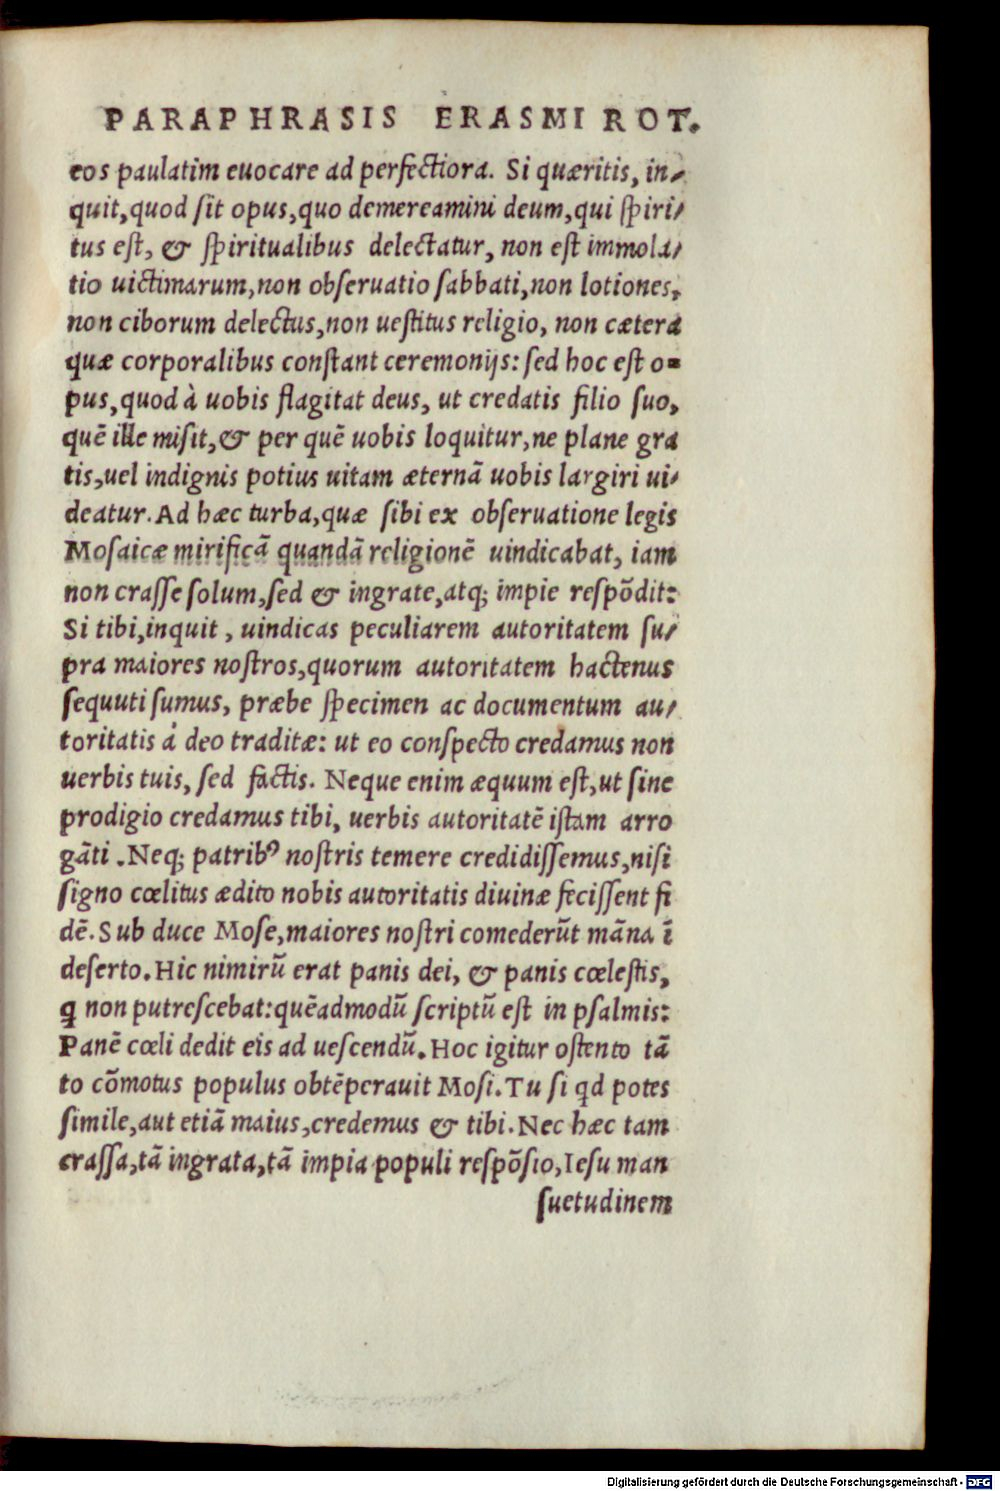 PARAPHRASIS ERASMI ROT.
eos paulatim euocare ad perfectiora. Si quæritis, in-
quit, quod sit opus, quo demereamini deum, qui spiri-
tus est, & spiritualibus delectatur, non est immola-
tio uictimarum, non obseruatio sabbati, non lotiones,
non ciborum delectus, non uestitus religio, non cætera
quæ corporalibus constant ceremonijs: sed hoc est o-
pus, quod à uobis flagitat deus, ut credatis filio suo,
quē ille misit, & per quē uobis loquitur, ne plane gra
tis, uel indignis potius uitam æternā uobis largiri ui-
deatur. Ad hæc turba, quæ sibi ex obseruatione legis
Mosaicæ mirificā quandā religionē uindicabat, iam
non crasse solum, sed & ingrate, atq; impie respōdit:
Si tibi, inquit, uindicas peculiarem autoritatem su-
pra maiores nostros, quorum autoritatem hactenus
sequuti sumus, præbe specimen ac documentum au-
toritatis á deo traditæ: ut eo conspecto credamus non
uerbis tuis, sed factis. Neque enim æquum est, ut sine
prodigio credamus tibi, uerbis autoritatē istam arro
gāti. Neq; patribꝰ nostris temere credidissemus, nisi
signo cœlitus ædito nobis autoritatis diuinæ fecissent fi
dē. Sub duce Mose, maiores nostri comederūt māna ī
deserto. Hic nimirū erat panis dei, & panis cœlestis,
ꝗ non putrescebat: quēadmodū scriptū est in psalmis:
Panē cœli dedit eis ad uescendū. Hoc igitur ostento tā
to cōmotus populus obtēperauit Mosi. Tu si qd potes
simile, aut etiā maius, credemus & tibi. Nec hæc tam
crassa, tā ingrata, tā impia populi respōsio, Iesu man
suetudinem
Digitalisierung gefördert durch die Deutsche Forschungsgemeinschaft - DFG